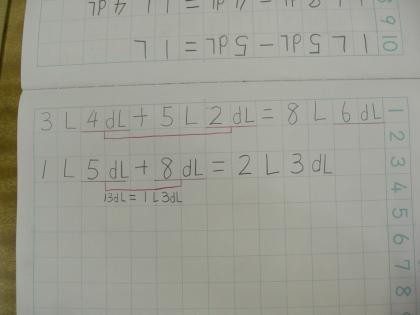 1L 5dL-5dL=1L
9
10
3L 4dL+5L 2dL=8L 6dL
1L 5dL+8dL=2L 3dL
13dL=1L3dL
1
2
3
4
5
6
7
8